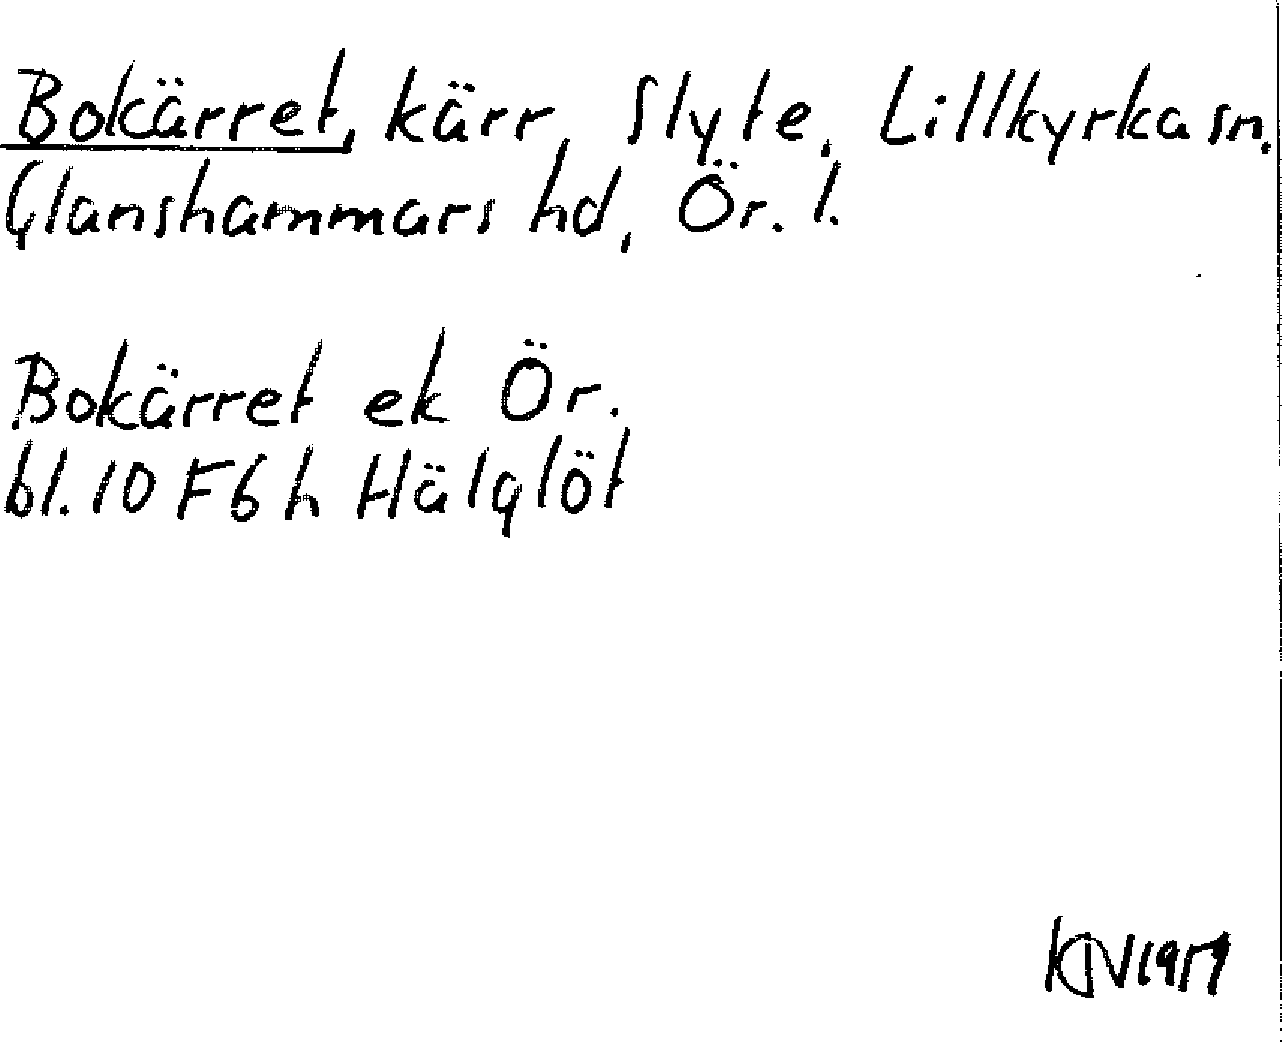 Bokärret, kärr, Slyte, Lillkyrka sn.
Glanshammars hd, Ör. l.
Bokärret ek Ör.
bl. 10 F6h Hälglöt